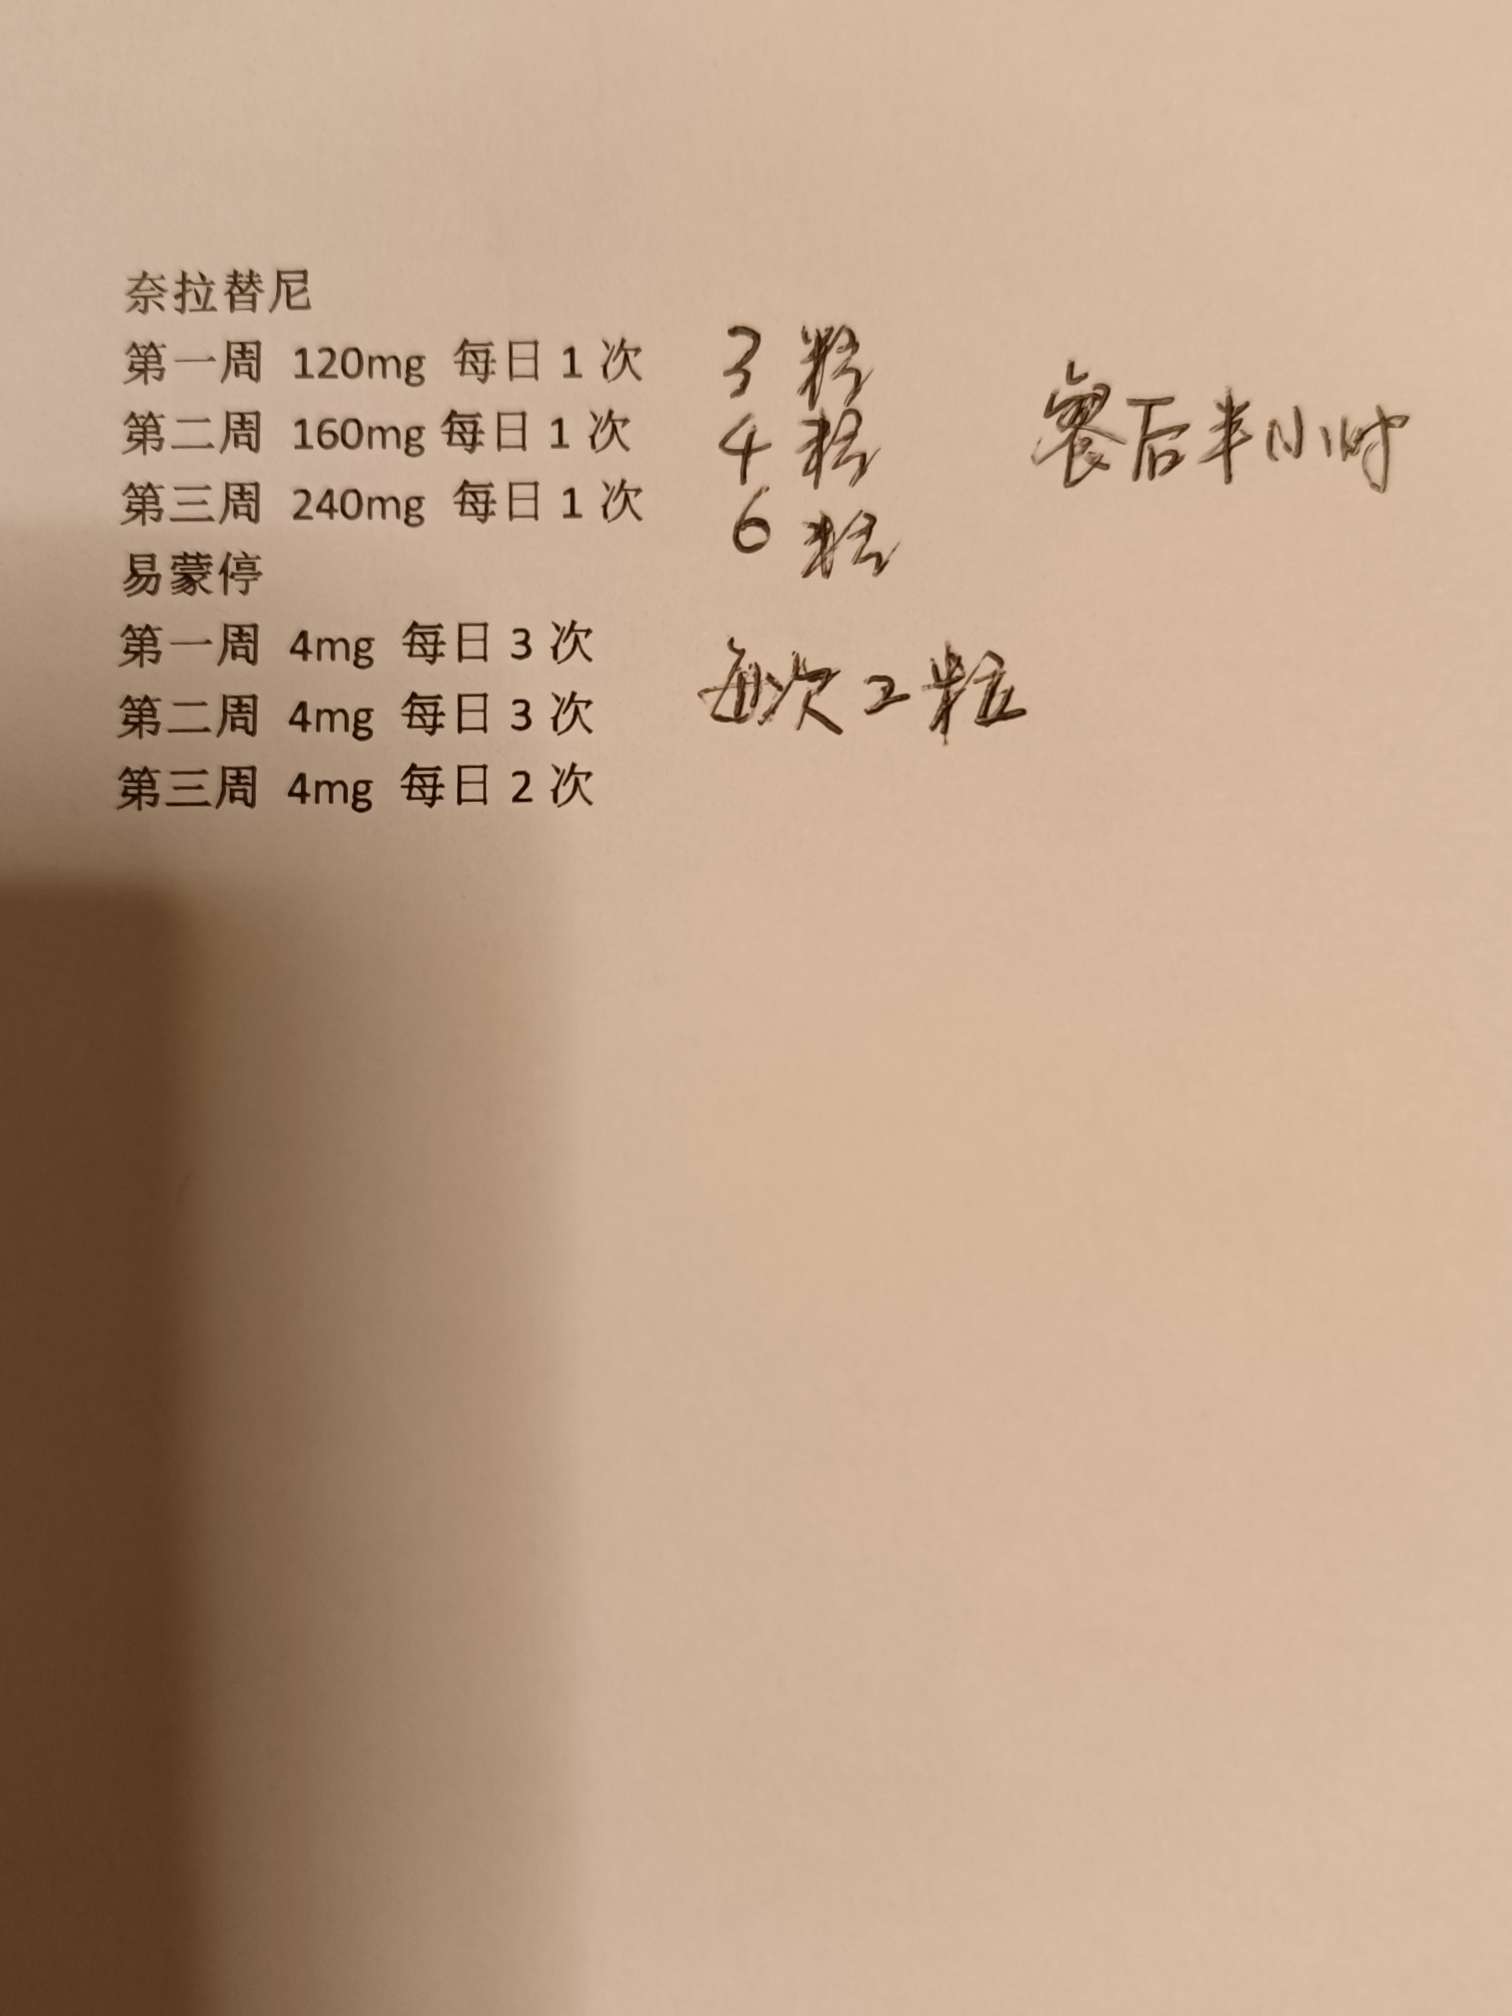 奈拉替尼
第一周 120mg 每日 1 次 3 粒
第二周 160mg 每日 1 次 4 粒 餐后半小时
第三周 240mg 每日 1 次 6 粒
易蒙停
第一周 4mg 每日 3 次
第二周 4mg 每日 3 次 每次 2 粒
第三周 4mg 每日 2 次